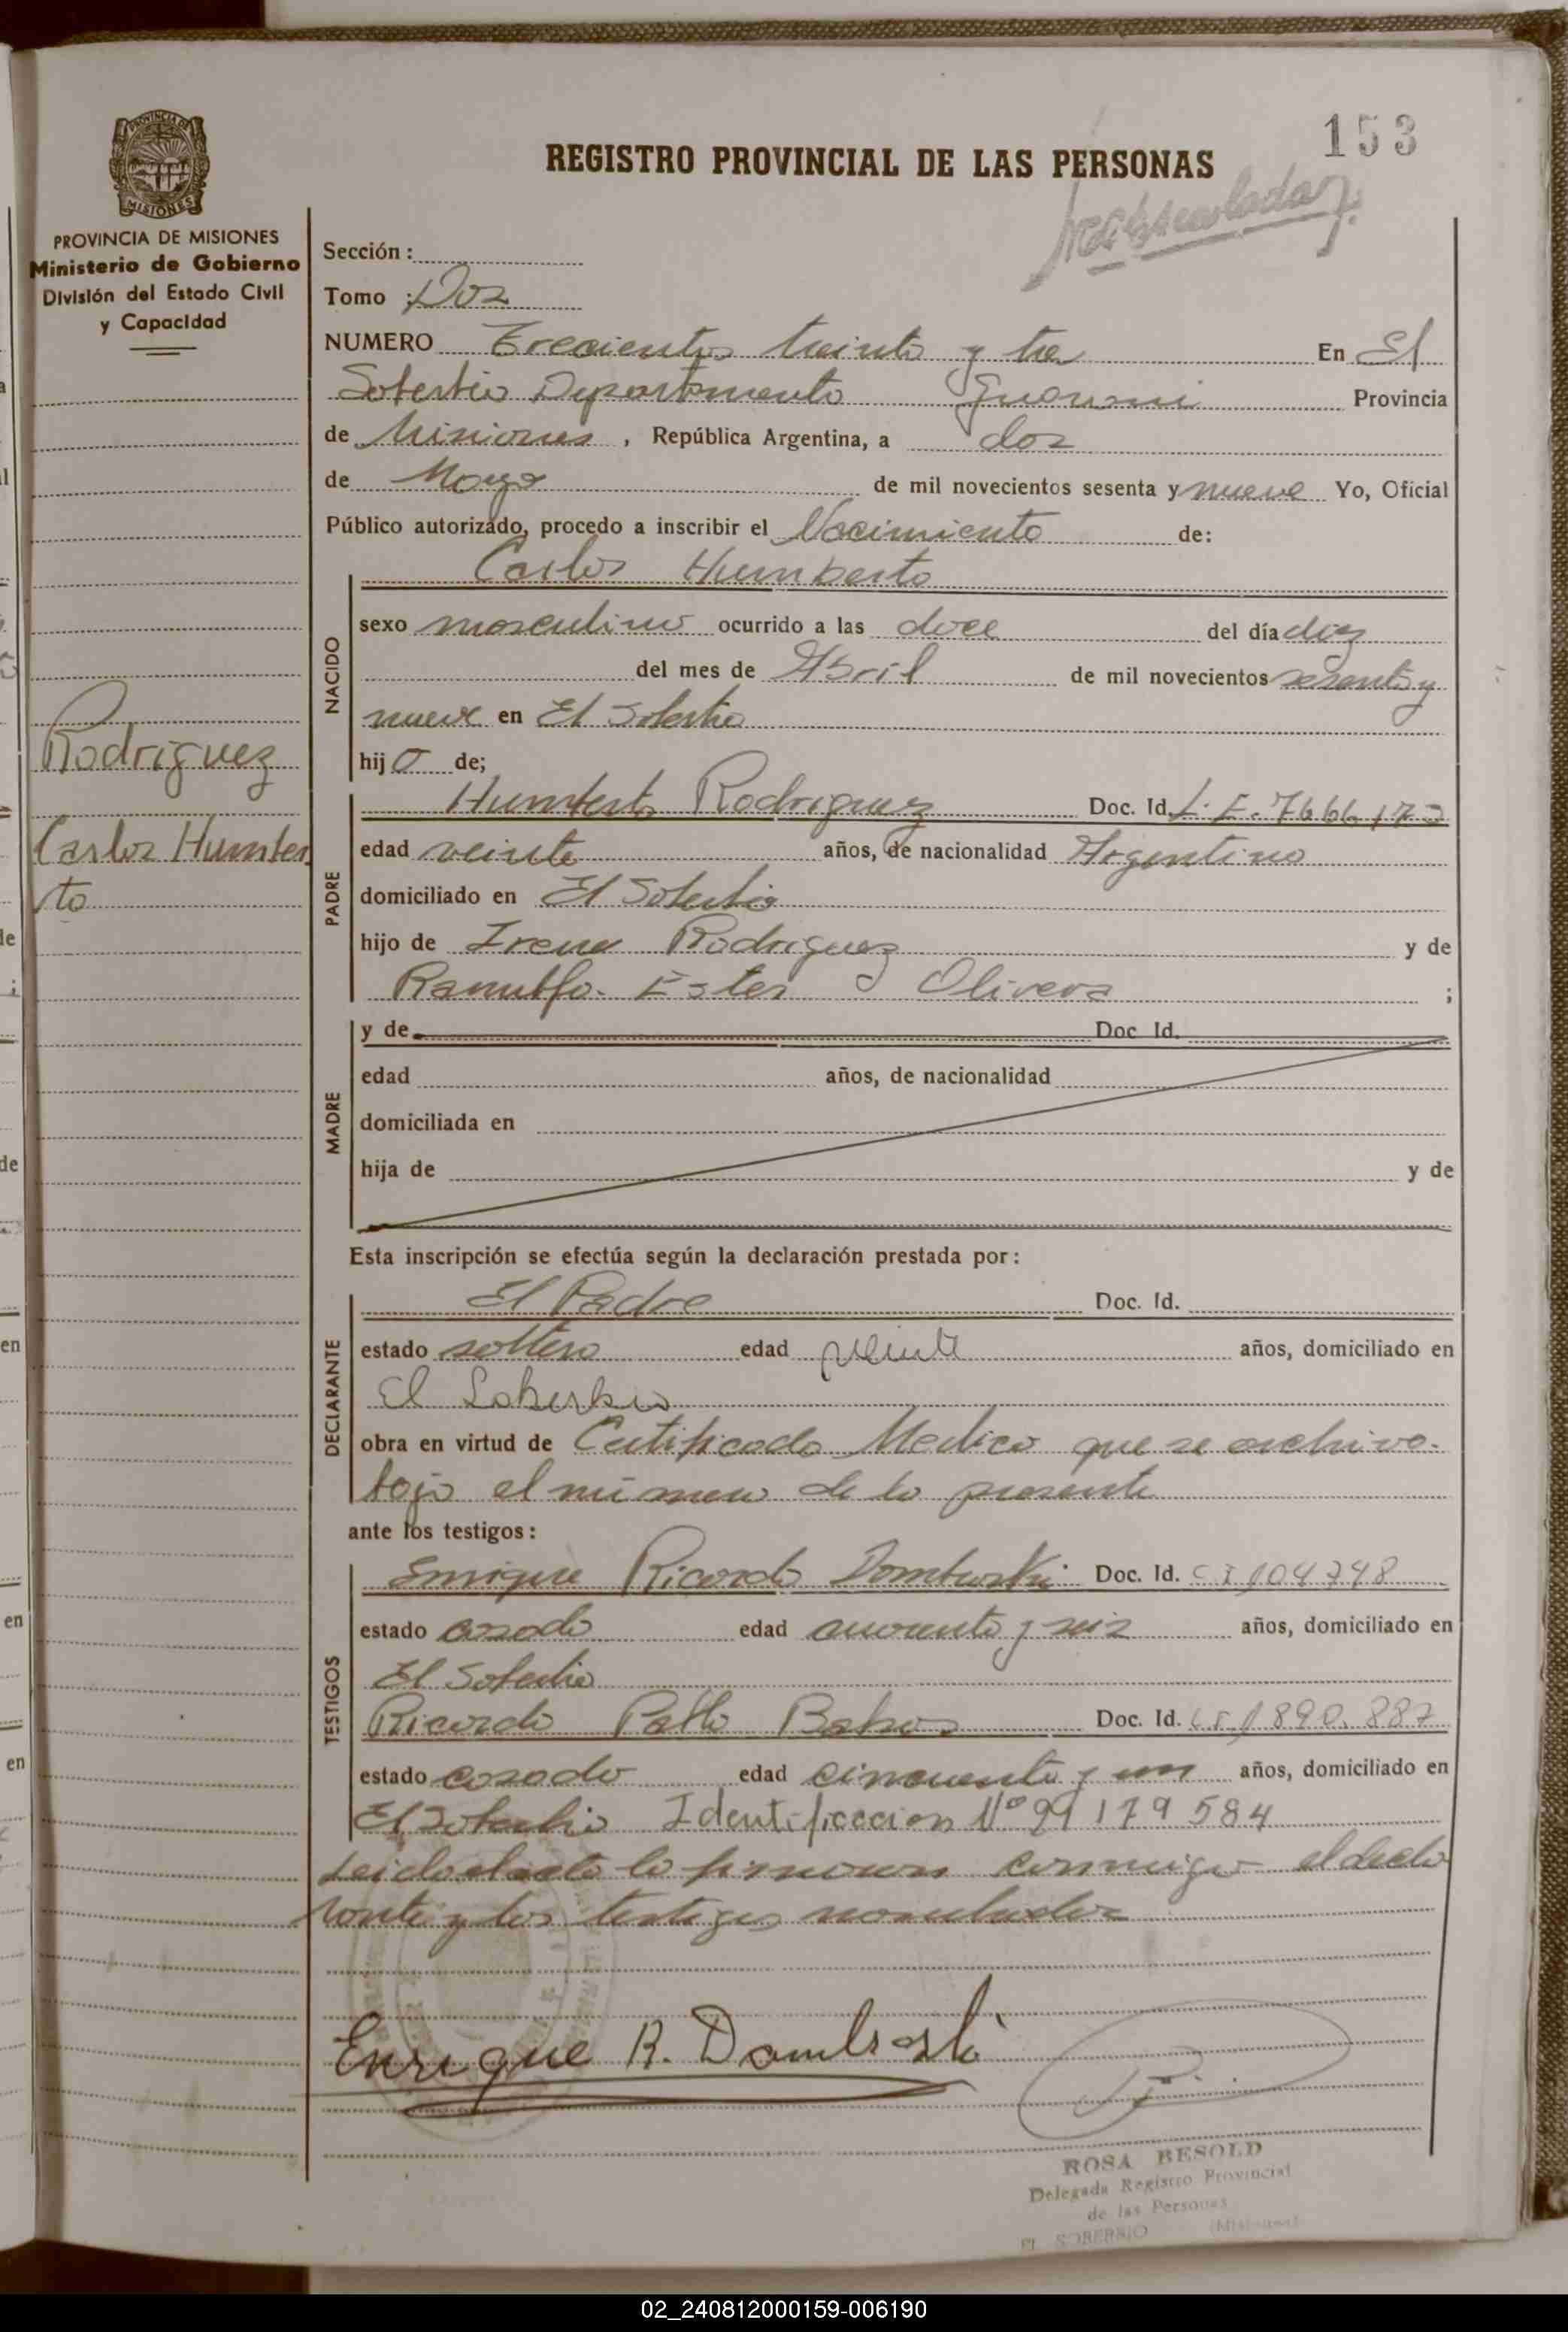 153
REGISTRO PROVINCIAL DE LAS PERSONAS
PROVINCIA DE MISIONES
Ministerio de Gobierno
División del Estado Civil
y Capacidad
Sección :
Tomo : Dos
NUMERO Trecientos treinta y tre En El
Soberbio Departamento Guarani Provincia
de Misiones , República Argentina, a dos
de Mayo de mil novecientos sesenta y nueve Yo, Oficial
Público autorizado, procedo a inscribir el Nacimiento de:
Carlos Humberto
NACIDO
sexo masculino ocurrido a las doce del día diez
del mes de Abril de mil novecientos sesenta y
nueve en El Soberbio
hijo de;
Rodriguez
Carlos Humber
to
PADRE
Humberto Rodriguez Doc. Id. L. E. 7666,173
edad veinte años, de nacionalidad Argentino
domiciliado en El Soberbio
hijo de Irene Rodriguez y de
Ramulfo Ester Olivera ;
MADRE
y de Doc Id.
edad años, de nacionalidad
domiciliada en
hija de y de
Esta inscripción se efectúa según la declaración prestada por :
DECLARANTE
El Padre Doc. Id.
estado soltero edad veinte años, domiciliado en
El Soberbio
obra en virtud de Certificado Medico que se archiva
bajo el numero de la presente
ante los testigos :
TESTIGOS
Enrique Ricardo Dombrski Doc. Id. C I 104748
estado casado edad cuarenta y seis años, domiciliado en
El Soberbio
Ricardo Pablo Doc. Id. 1.890.887
estado casado edad cincuenta y un años, domiciliado en
El Soberbio Identificacion Nº 99179584
Leido el acta la firmaron conmigo el decla
rante y los testigos nombrados
Enrique R. Dombrski
ROSA BESOLD
Delegada Registro Provincial
de las Personas
EL SOBERBIO (Misiones)
02_240812000159-006190